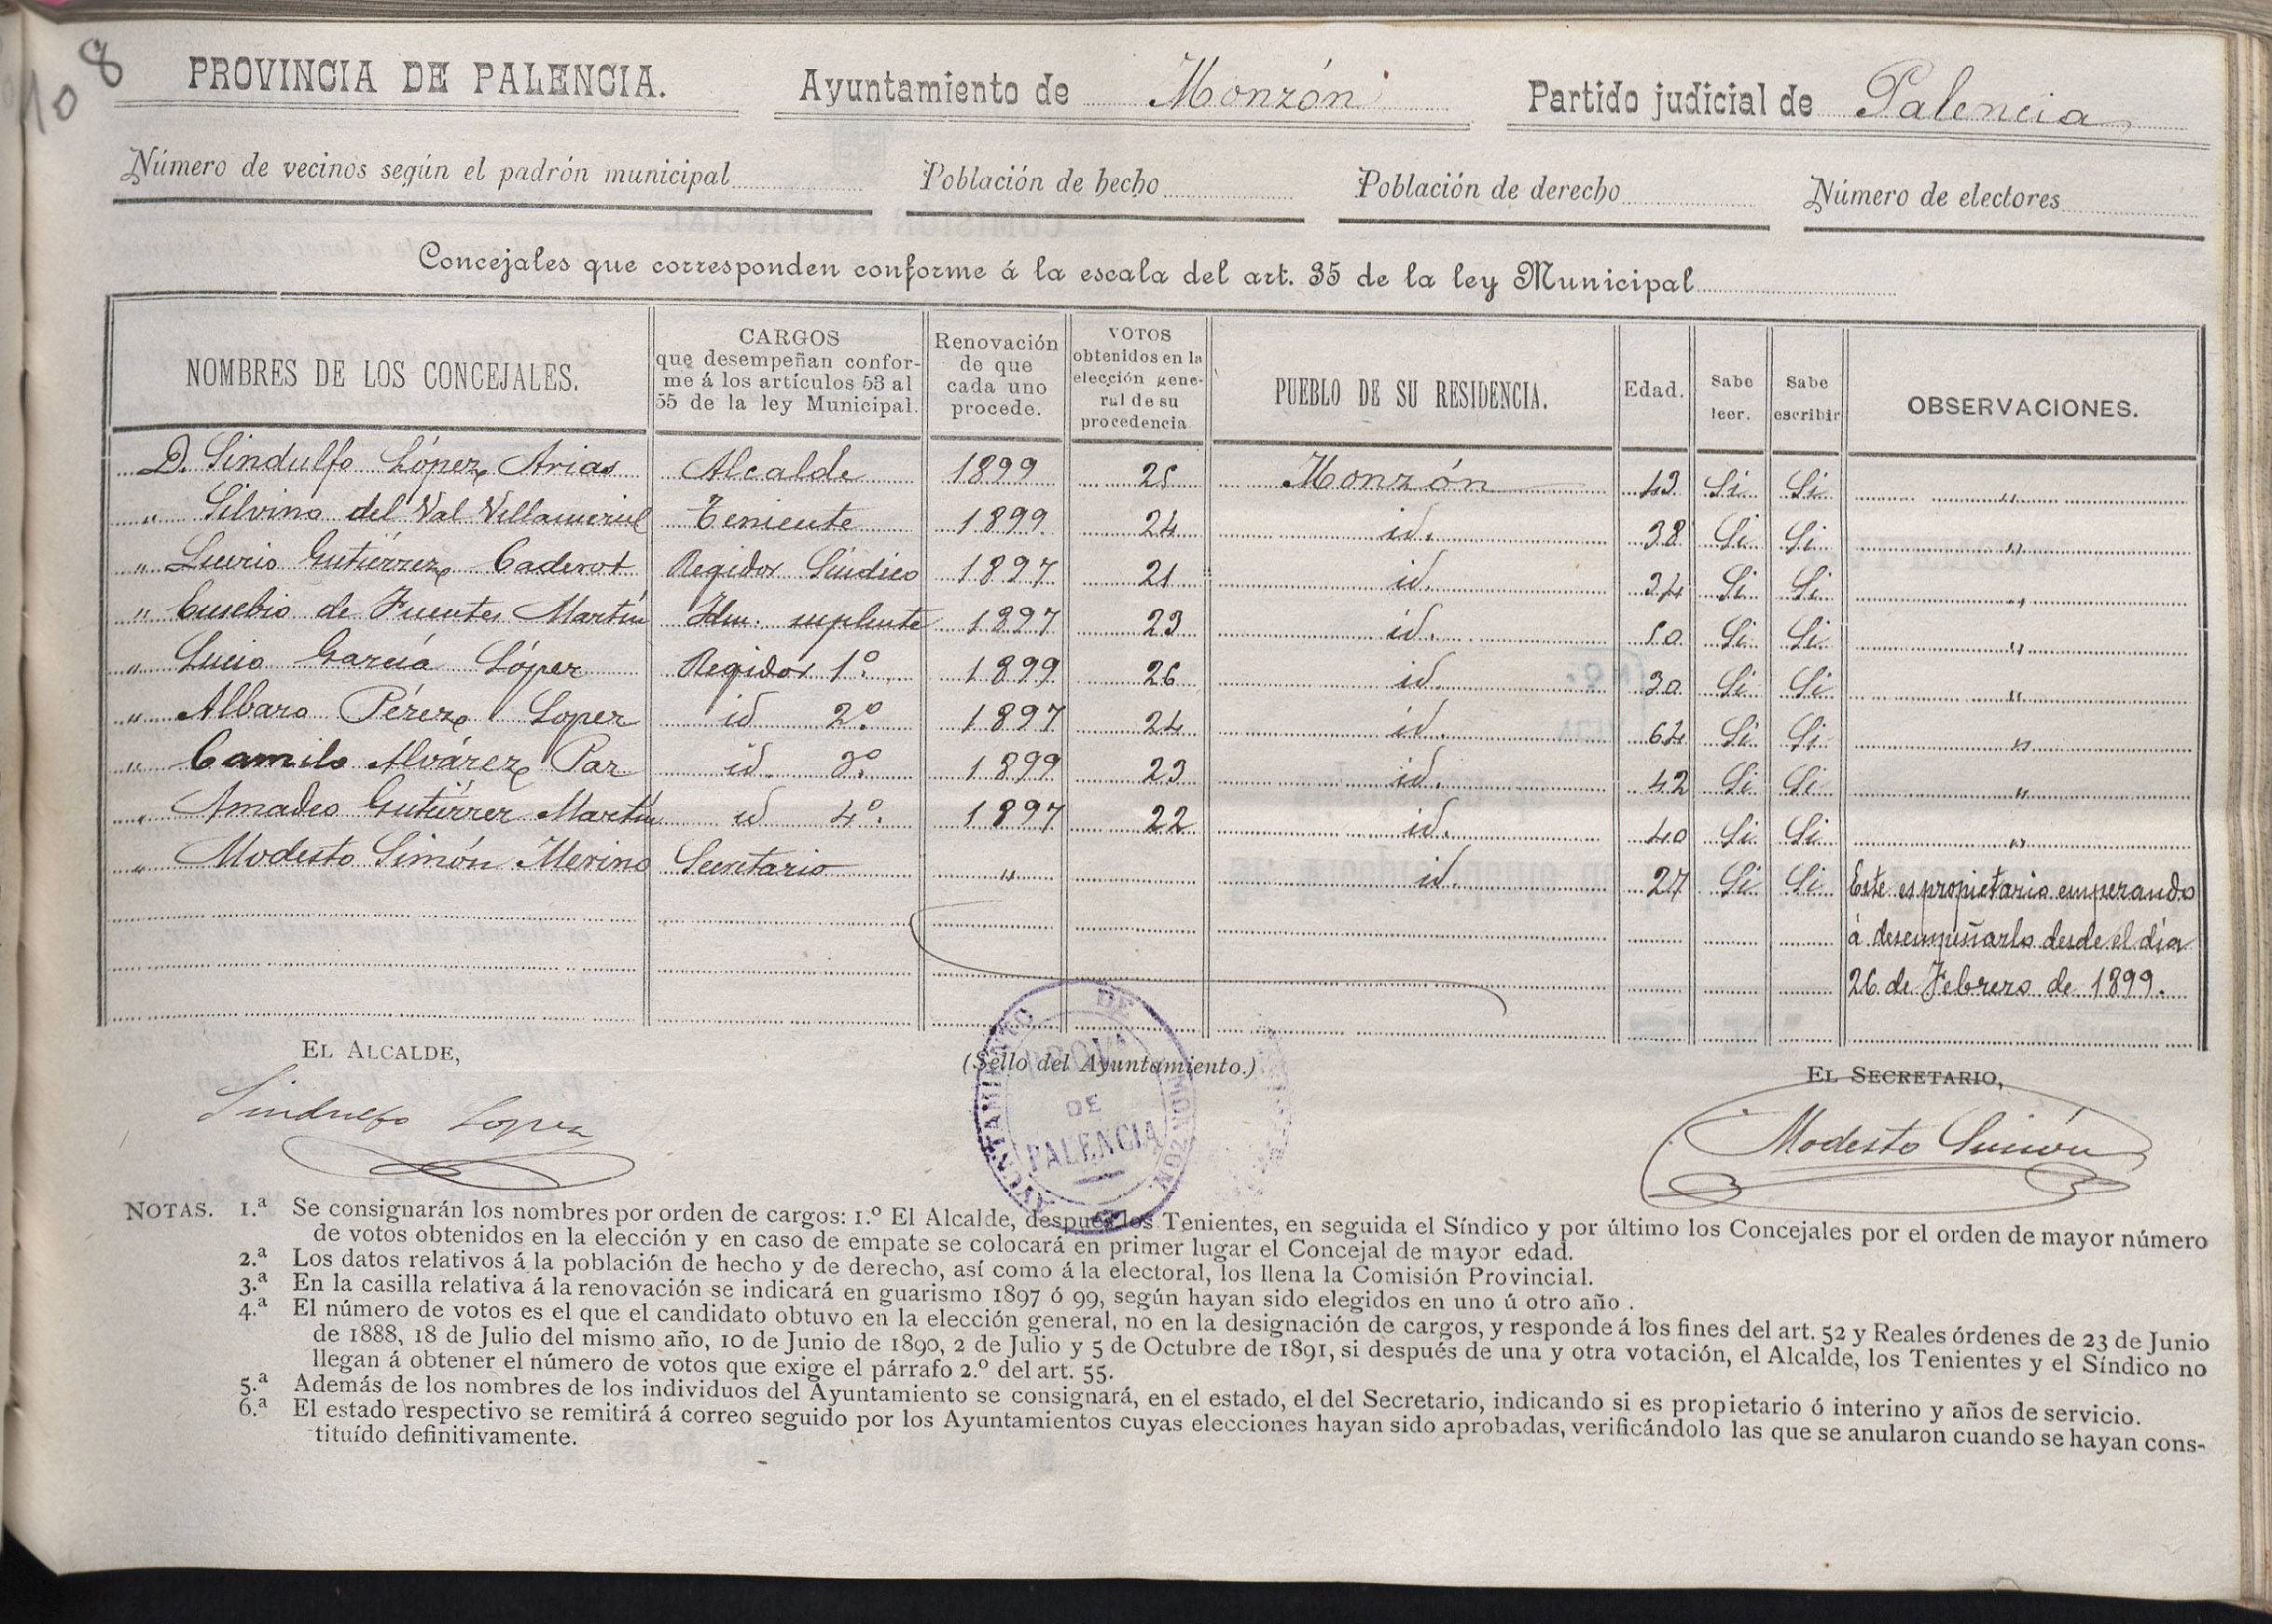 108
PROVINCIA DE PALENCIA. Ayuntamiento de Monzón Partido judicial de Palencia
Número de vecinos según el padrón municipal Población de hecho Población de derecho Número de electores
Concejales que corresponden conforme á la escala del art. 35 de la ley Municipal
NOMBRES DE LOS CONCEJALES.
CARGOS
que desempeñan confor-
me á los artículos 53 al
55 de la ley Municipal.
Renovación
de que
cada uno
procede.
VOTOS
obtenidos en la
elección gene-
ral de su
procedencia
PUEBLO DE SU RESIDENCIA.
Edad.
Sabe
leer.
Sabe
escribir
OBSERVACIONES.
D. Sindulfo López Arias Alcalde 1899 25 Monzón 43 Si Si "
" Silvino del Val Villamuriel Teniente 1899 24 id. 38 Si Si "
" Gutiérrez Regidor Síndico 1897 21 id. 34 Si Si "
" Eusebio de Fuentes Martín Idm. suplente 1897 23 id. 50 Si Si "
" Lucio García López Regidor 1º 1899 26 id. 30 Si Si "
" Albaro Pérez Lopez id 2º 1897 24 id. 64 Si Si "
" Camilo Alvárez Paz id. 3º 1899 23 id. 42 Si Si "
" Amadeo Gutiérrez Martín id 4º. 1897 22 id. 40 Si Si "
" Modesto Simón Merino Secretario " id. 27 Si Si Este es propietario empezando
á desempeñarlo desde el dia
26 de Febrero de 1899.
EL ALCALDE,
(Sello del Ayuntamiento.)
EL SECRETARIO,
Sindulfo Lopez
AYUNTAMIENTO DE MONZON
PROVª
DE
PALENCIA
Modesto Simón
NOTAS. 1.ª Se consignarán los nombres por orden de cargos: 1.º El Alcalde, despues los Tenientes, en seguida el Síndico y por último los Concejales por el orden de mayor número
de votos obtenidos en la elección y en caso de empate se colocará en primer lugar el Concejal de mayor edad.
2.ª Los datos relativos á la población de hecho y de derecho, así como á la electoral, los llena la Comisión Provincial.
3.ª En la casilla relativa á la renovación se indicará en guarismo 1897 ó 99, según hayan sido elegidos en uno ú otro año .
4.ª El número de votos es el que el candidato obtuvo en la elección general, no en la designación de cargos, y responde á los fines del art. 52 y Reales órdenes de 23 de Junio
de 1888, 18 de Julio del mismo año, 10 de Junio de 1890, 2 de Julio y 5 de Octubre de 1891, si después de una y otra votación, el Alcalde, los Tenientes y el Síndico no
llegan á obtener el número de votos que exige el párrafo 2.º del art. 55.
5.ª Además de los nombres de los individuos del Ayuntamiento se consignará, en el estado, el del Secretario, indicando si es propietario ó interino y años de servicio.
6.ª El estado respectivo se remitirá á correo seguido por los Ayuntamientos cuyas elecciones hayan sido aprobadas, verificándolo las que se anularon cuando se hayan cons-
tituído definitivamente.